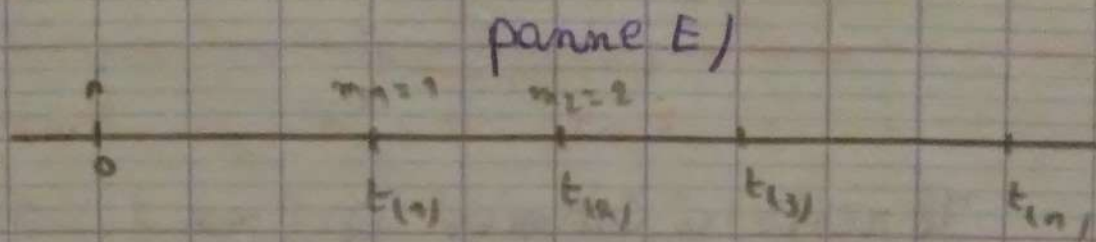 panne E)
n m₁ = 1 m₂ = 2
0 t₍₁₎ t₍₂₎ t₍₃₎ t₍ₙ₎